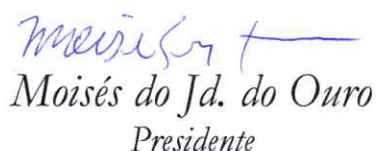 Moisés do Jd. do Ouro
Presidente